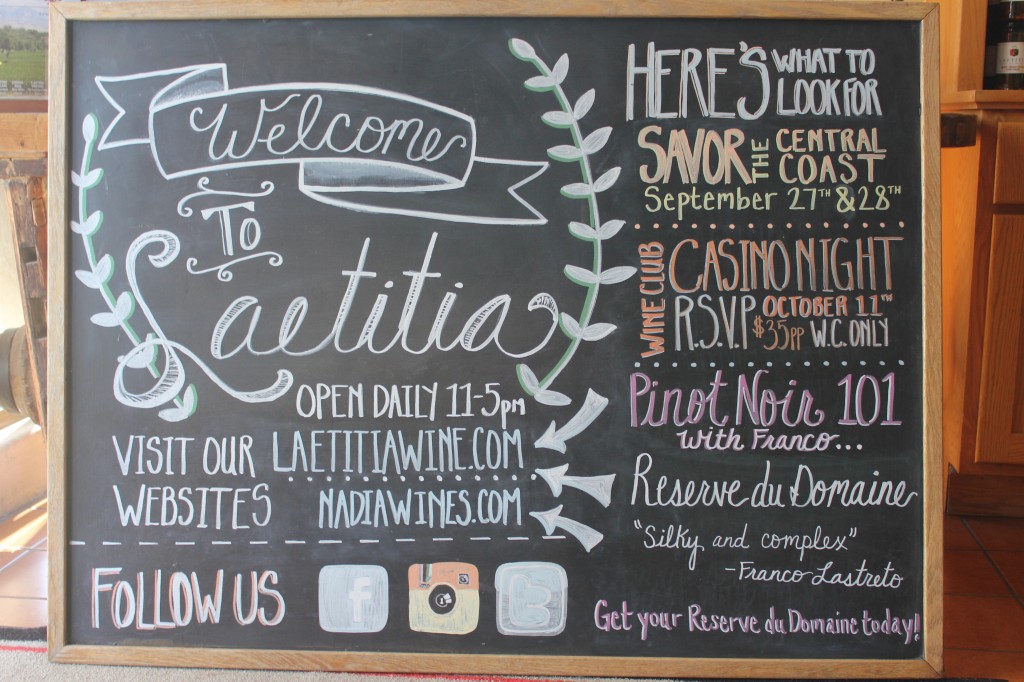 Welcome
To
Laetitia
OPEN DAILY 11-5pm
VISIT OUR WEBSITES
LAETITIAWINE.COM
NADIAWINES.COM
FOLLOW US
f
t
HERE'S WHAT TO LOOK FOR
SAVOR THE CENTRAL COAST
September 27TH & 28TH
WINE CLUB
CASINO NIGHT
R.S.V.P OCTOBER 11TH
$35PP W.C. ONLY
Pinot Noir 101
with Franco...
Reserve du Domaine
"Silky and complex"
-Franco Lastreto
Get your Reserve du Domaine today!